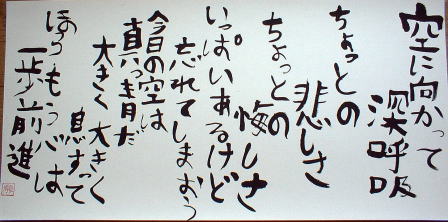 空に向かって
深呼吸
ちょっとの
悲しさ
ちょっとの
悔しさ
いっぱいあるけど
忘れてしまおう
今日の空は
真っ青だ
大きく大きく
息すって
ほらもう心は
一歩前進